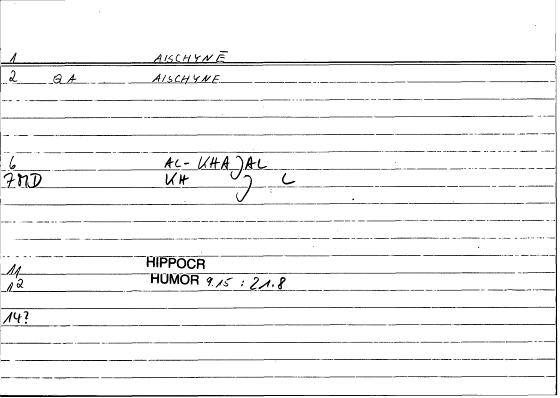 1 AISCHYNĒ
2 QA AISCHYNE
6 AL-KHAJAL
7MD KH J L
11 HIPPOCR
12 HUMOR 9.15 : 21.8
14?